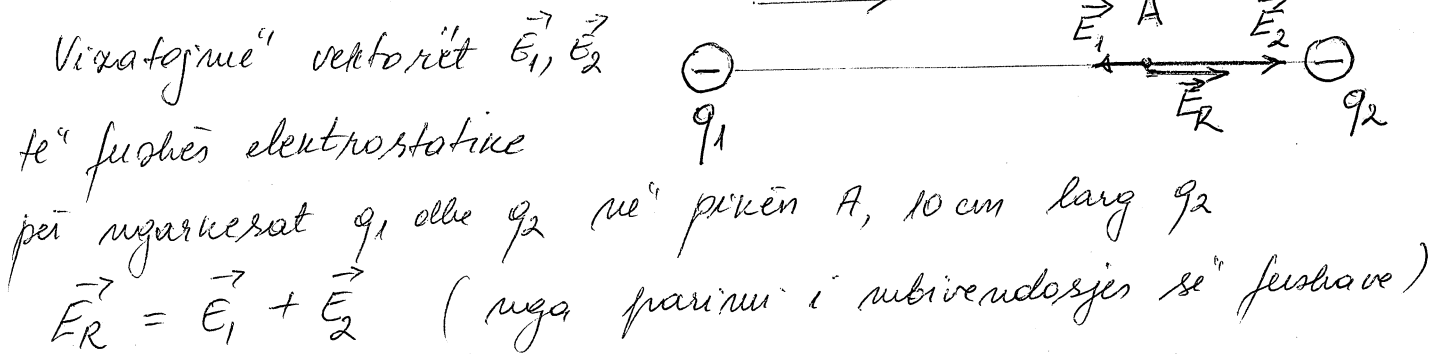 E⃗₁ A E⃗₂
Vizatojmë vektorët E⃗₁, E⃗₂
− −
E⃗R
q₁ q₂
të fushës elektrostatike
për ngarkesat q₁ dhe q₂ në pikën A, 10 cm larg q₂
E⃗R = E⃗₁ + E⃗₂ (nga parimi i mbivendosjes së fushave)